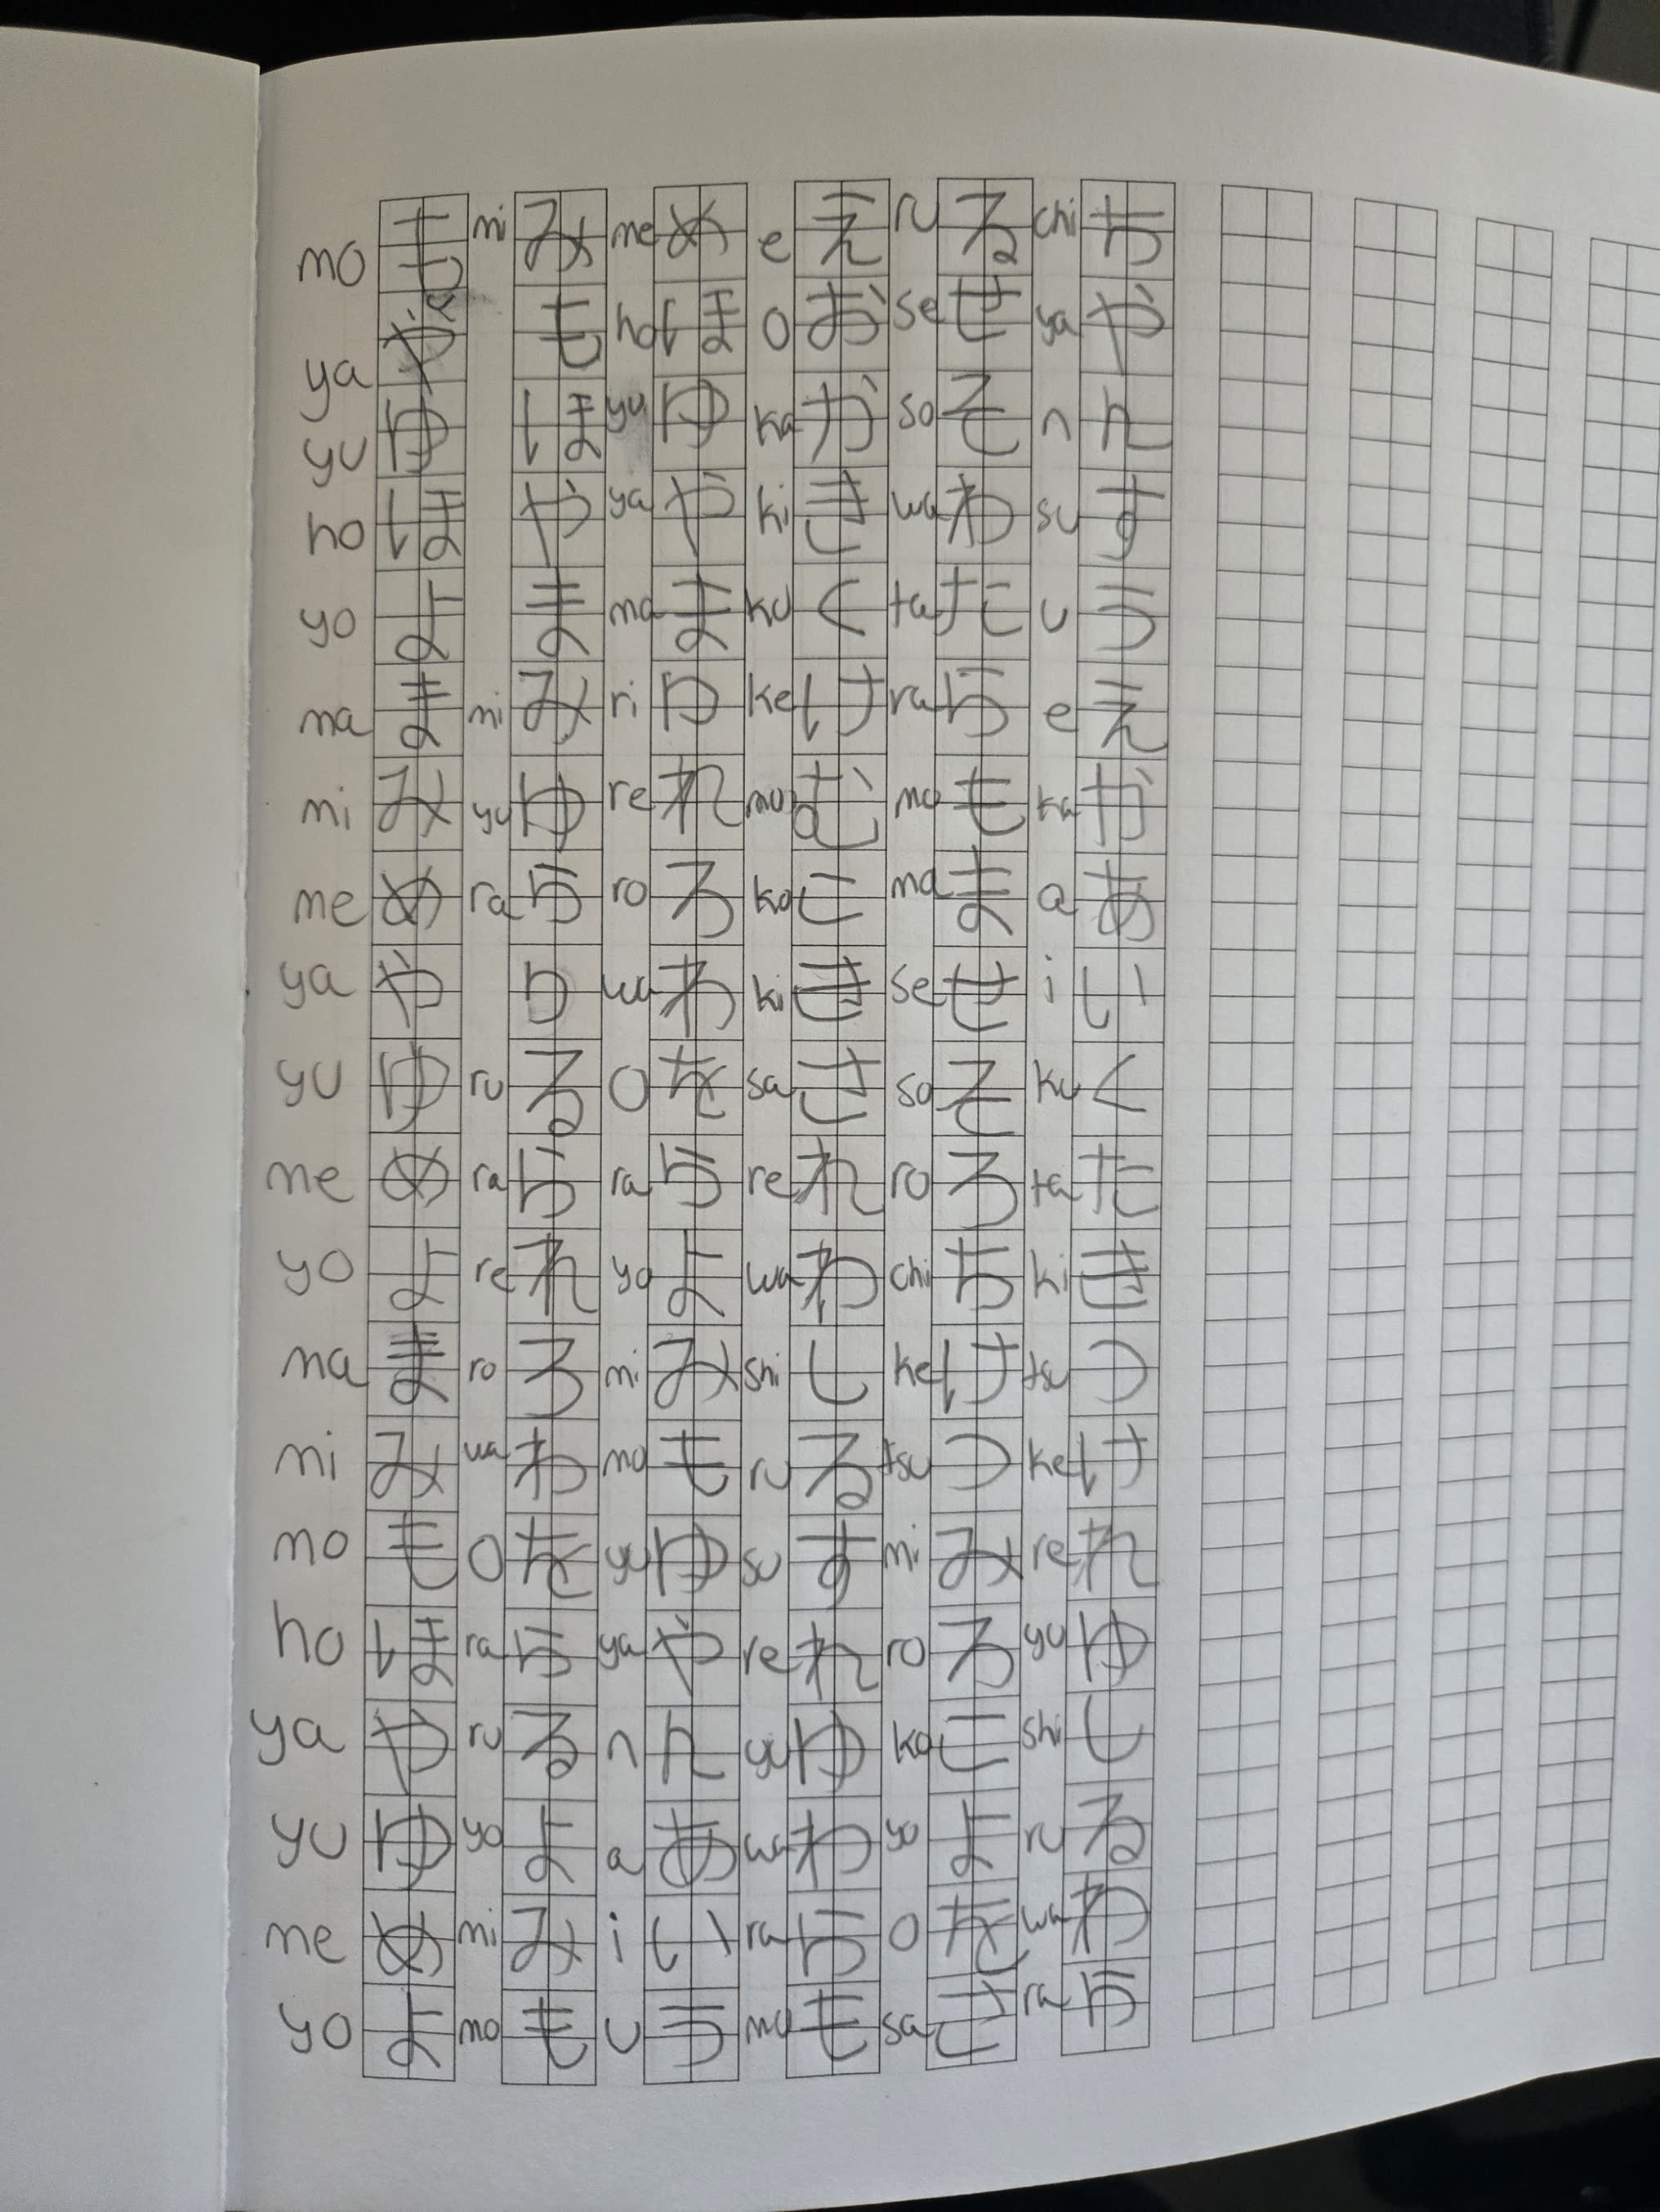 mo も mi み me め e え ru る chi ち
ya や も ho ほ o お se せ ya や
yu ゆ ほ yu ゆ ka か so そ n ん
ho ほ や ya や ki き wa わ su す
yo よ ま ma ま ku く ta た u う
ma ま mi み ri り ke け ra ら e え
mi み yu ゆ re れ mu む mo も ka か
me め ra ら ro ろ ko こ ma ま a あ
ya や り wa わ ki き se せ i い
yu ゆ ru る o を sa さ so そ ku く
me め ra ら ra ら re れ ro ろ ta た
yo よ re れ yo よ wa わ chi ち ki き
ma ま ro ろ mi み shi し ke け tsu つ
mi み wa わ mo も ru る tsu つ ke け
mo も o を yu ゆ su す mi み re れ
ho ほ ra ら ya や re れ ro ろ yu ゆ
ya や ru る n ん yu ゆ ko こ shi し
yu ゆ yo よ a あ wa わ yo よ ru る
me め mi み i い ra ら o を wa わ
yo よ mo も u う mo も sa さ ra ら